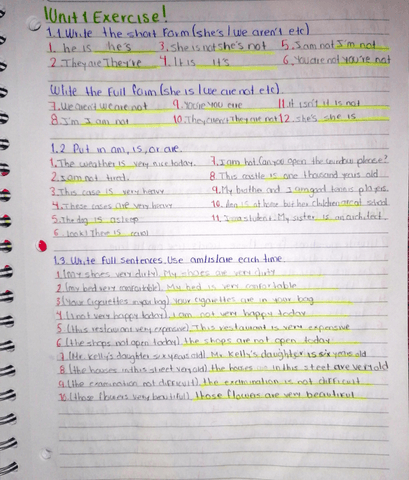 Unit 1 Exercise!
1.1 Write the short form (she's / we aren't etc)
1. he is he's 3. she is not she's not 5. I am not I'm not
2. They are They're 4. It is it's 6. You are not you're not
Write the full form (she is / we are not etc).
7. we aren't we are not 9. You're You are 11. it isn't it is not
8. I'm I am not 10. They aren't They are not 12. she's she is
1.2 Put in am, is, or are.
1. The weather is very nice today. 7. I am hot. Can you open the window please?
2. I am not tired. 8. This castle is one thousand years old
3. This case is very heavy 9. My brother and I are good tennis players
4. These cases are very heavy 10. Ann is at home but her children are at school.
5. The dog is asleep 11. I am a student. My sister is an architect.
6. Look! There is
1.3. Write full sentences. Use am/is/are each time.
1. (My shoes very dirty). My shoes are very dirty
2. (my bed very comfortable). My bed is very comfortable
3. (Your cigarettes in your bag) Your cigarettes are in your bag
4. (I not very happy today). I am not very happy today
5. (this restaurant very expensive). This restaurant is very expensive
6. (the shops not open today) the shops are not open today
7. (Mr. Kelly's daughter six years old). Mr. Kelly's daughter is six years old
8. (the houses in this street very old). the houses in this steet are very old
9. (the examination not difficult). the examination is not difficult
10. (those flowers very beautiful). those flowers are very beautiful